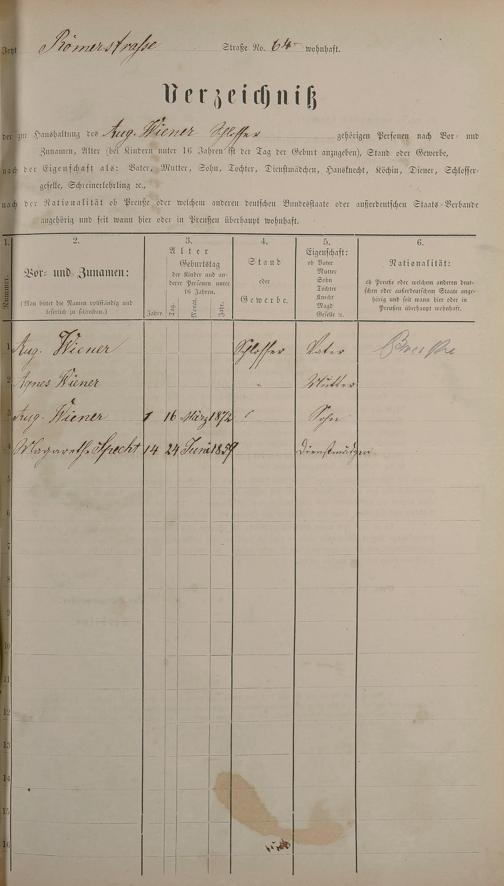 Jetzt Römerstrasse Straße No. 64 wohnhaft.
Verzeichniß
der zur Haushaltung des Aug. Wiener Schlosser gehörigen Personen nach Vor- und
Zunamen, Alter (bei Kindern unter 16 Jahren ist der Tag der Geburt anzugeben), Stand oder Gewerbe,
nach der Eigenschaft als: Vater, Mutter, Sohn, Tochter, Dienstmädchen, Hausknecht, Köchin, Diener, Schlosser-
geselle, Schreinerlehrling ꝛc.,
nach der Nationalität ob Preuße oder welchem anderen deutschen Bundesstaate oder außerdeutschen Staats-Verbande
angehörig und seit wann hier oder in Preußen überhaupt wohnhaft.
1. 2. 3. 4. 5. 6.
Nummer.
Vor- und Zunamen:
(Man bittet die Namen vollständig und
leserlich zu schreiben.)
Alter
Geburtstag
der Kinder und an-
derer Personen unter
16 Jahren.
Jahre. Tag. Monat. Jahr.
Stand
oder
Gewerbe.
Eigenschaft:
ob Vater
Mutter
Sohn
Tochter
Knecht
Magd
Geselle ꝛc.
Nationalität:
ob Preuße oder welchem anderen deut-
schen oder außerdeutschen Staate ange-
hörig und seit wann hier oder in
Preußen überhaupt wohnhaft.
1 Aug. Wiener Schlosser Vater
2 Agnes Wiener " Mutter
3 Aug. Wiener 1 16 März 1872 Sohn
4 Magareth. Specht 14 24 Juni 1859 Dienstmädgen
5
6
7
8
9
10
11
12
13
14
15
16